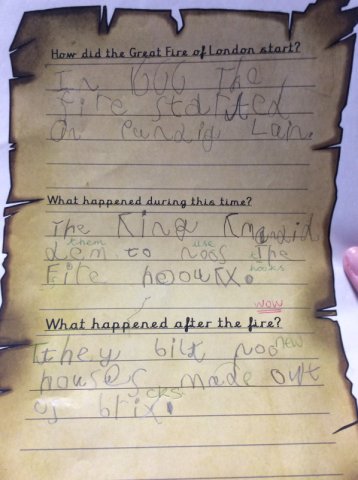 How did the Great Fire of London start?
In 1666 The
Fire started
On Pundig Lain
What happened during this time?
The King
them use
dem to noos The
houses
Fire hooux.
wow
What happened after the fire?
they bilt noo new
houses made out
cks
of brix.